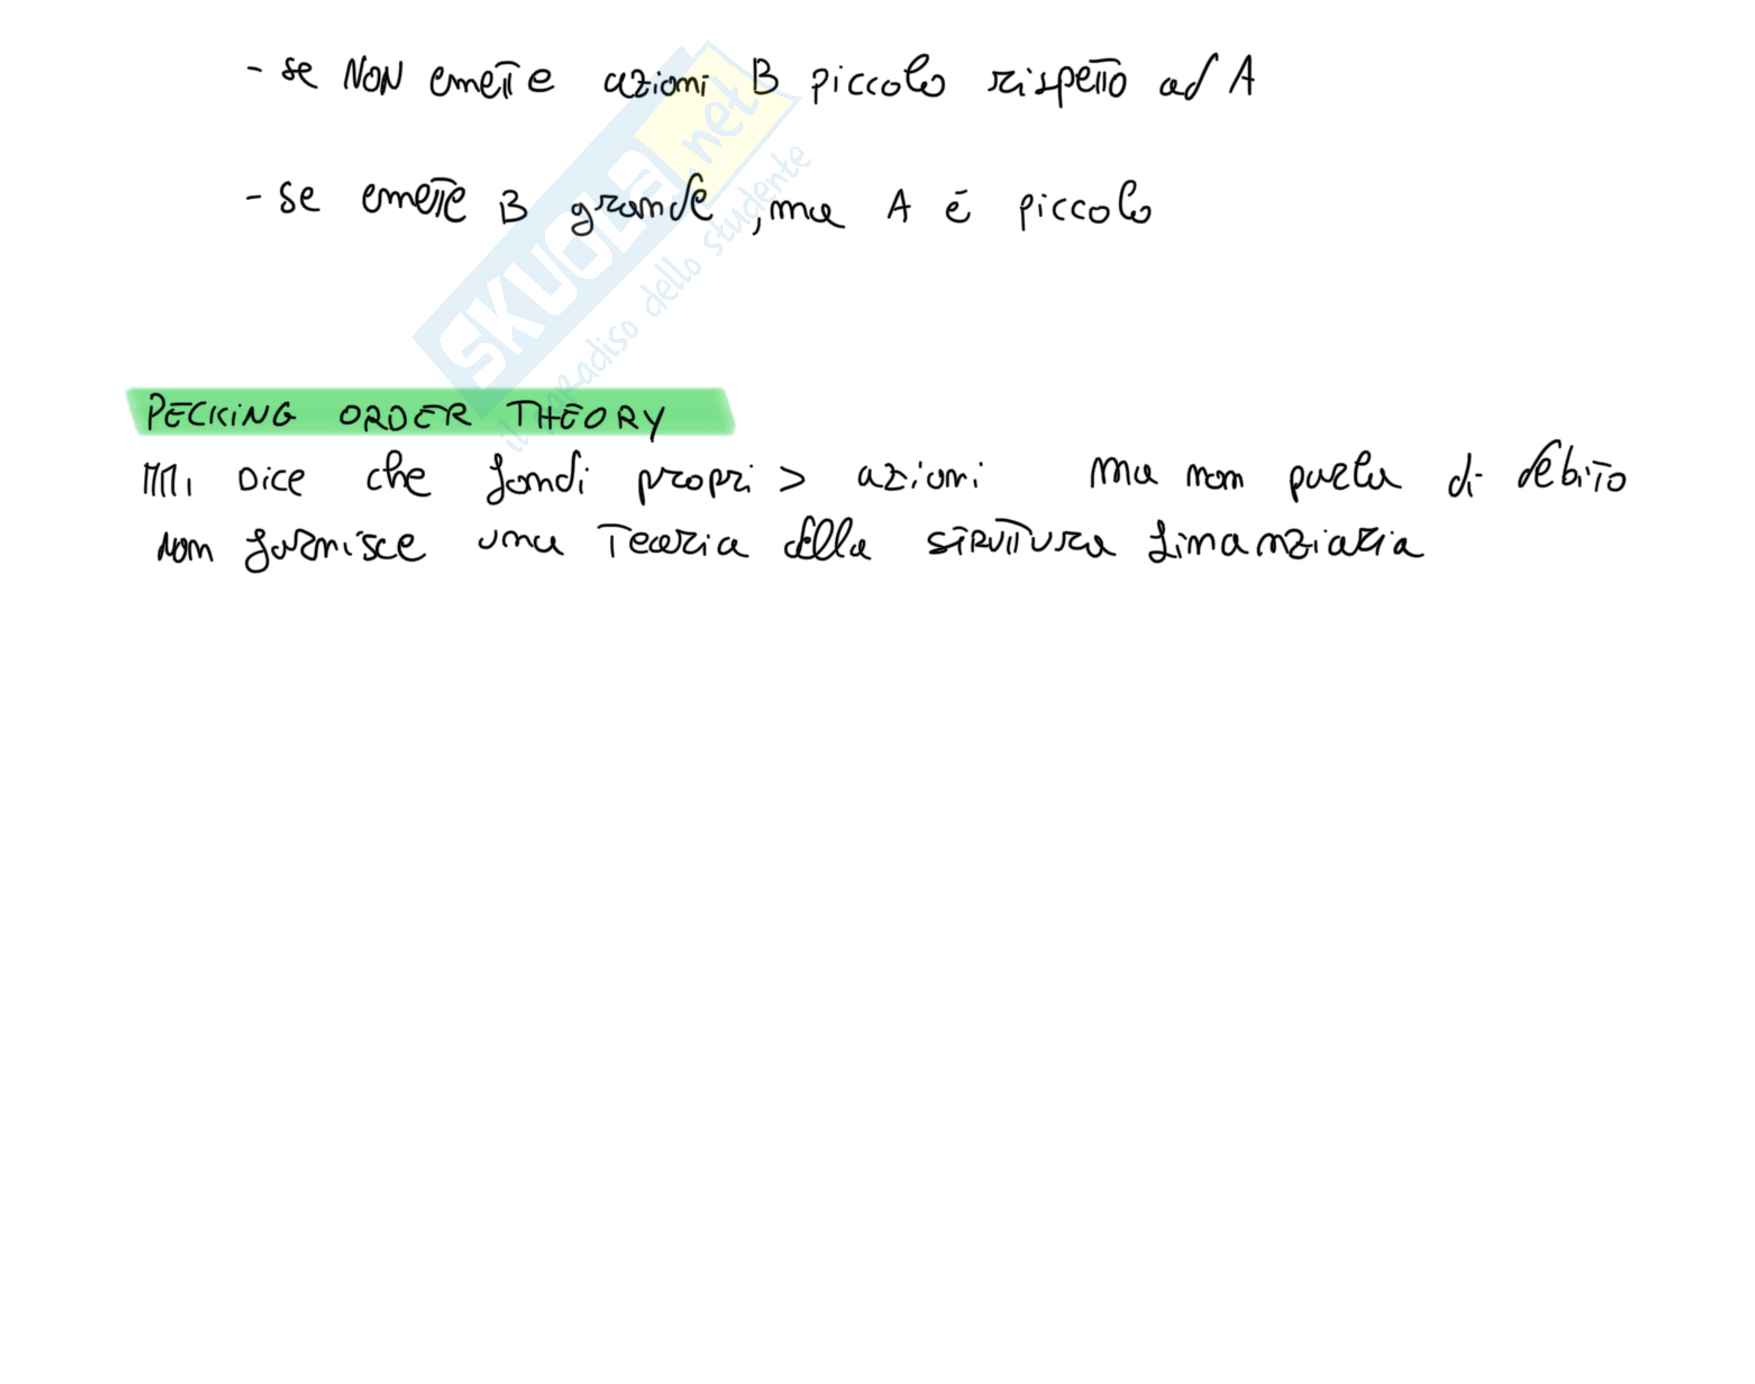 - se NON emette azioni B piccolo rispetto ad A
- se emette B grande, ma A è piccolo
SKUOLA.net
il paradiso dello studente
PECKING ORDER THEORY
MM, Dice che fondi propri > azioni ma non parla di debito
non fornisce una Teoria della struttura finanziaria